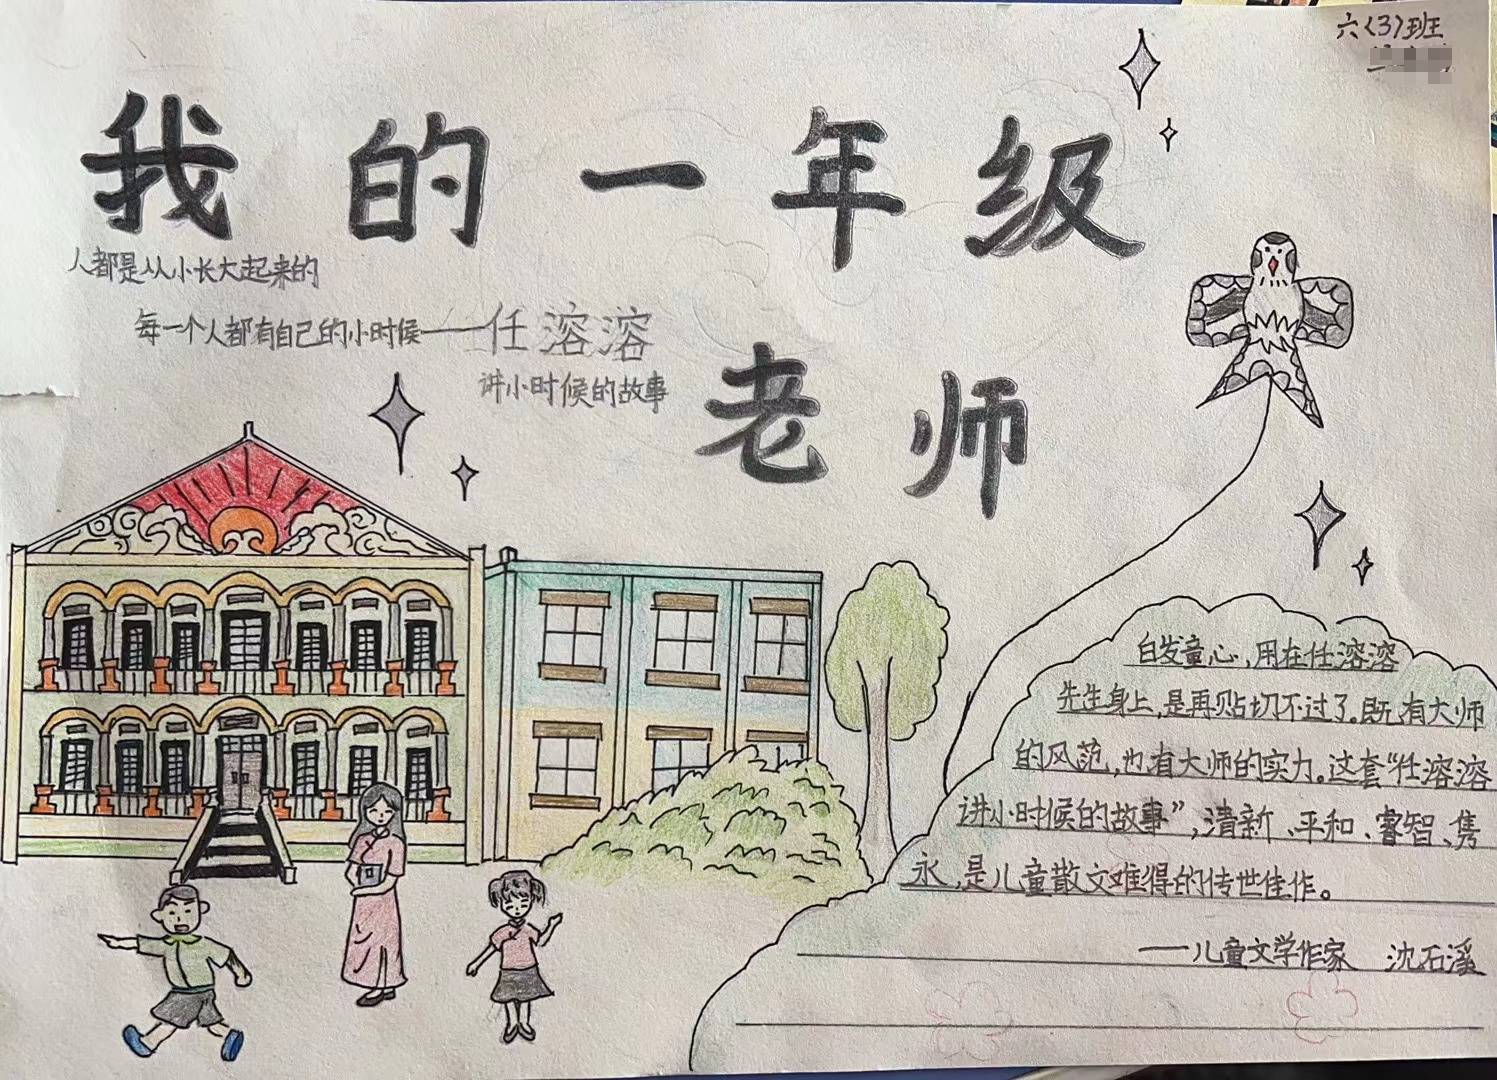 六(3)班
我的一年级
人都是从小长大起来的
每一个人都有自己的小时候——任溶溶
讲小时候的故事
老师
白发童心，用在任溶溶
先生身上，是再贴切不过了。既有大师
的风范，也有大师的实力。这套“任溶溶
讲小时候的故事”，清新、平和、睿智、隽
永，是儿童散文难得的传世佳作。
——儿童文学作家 沈石溪